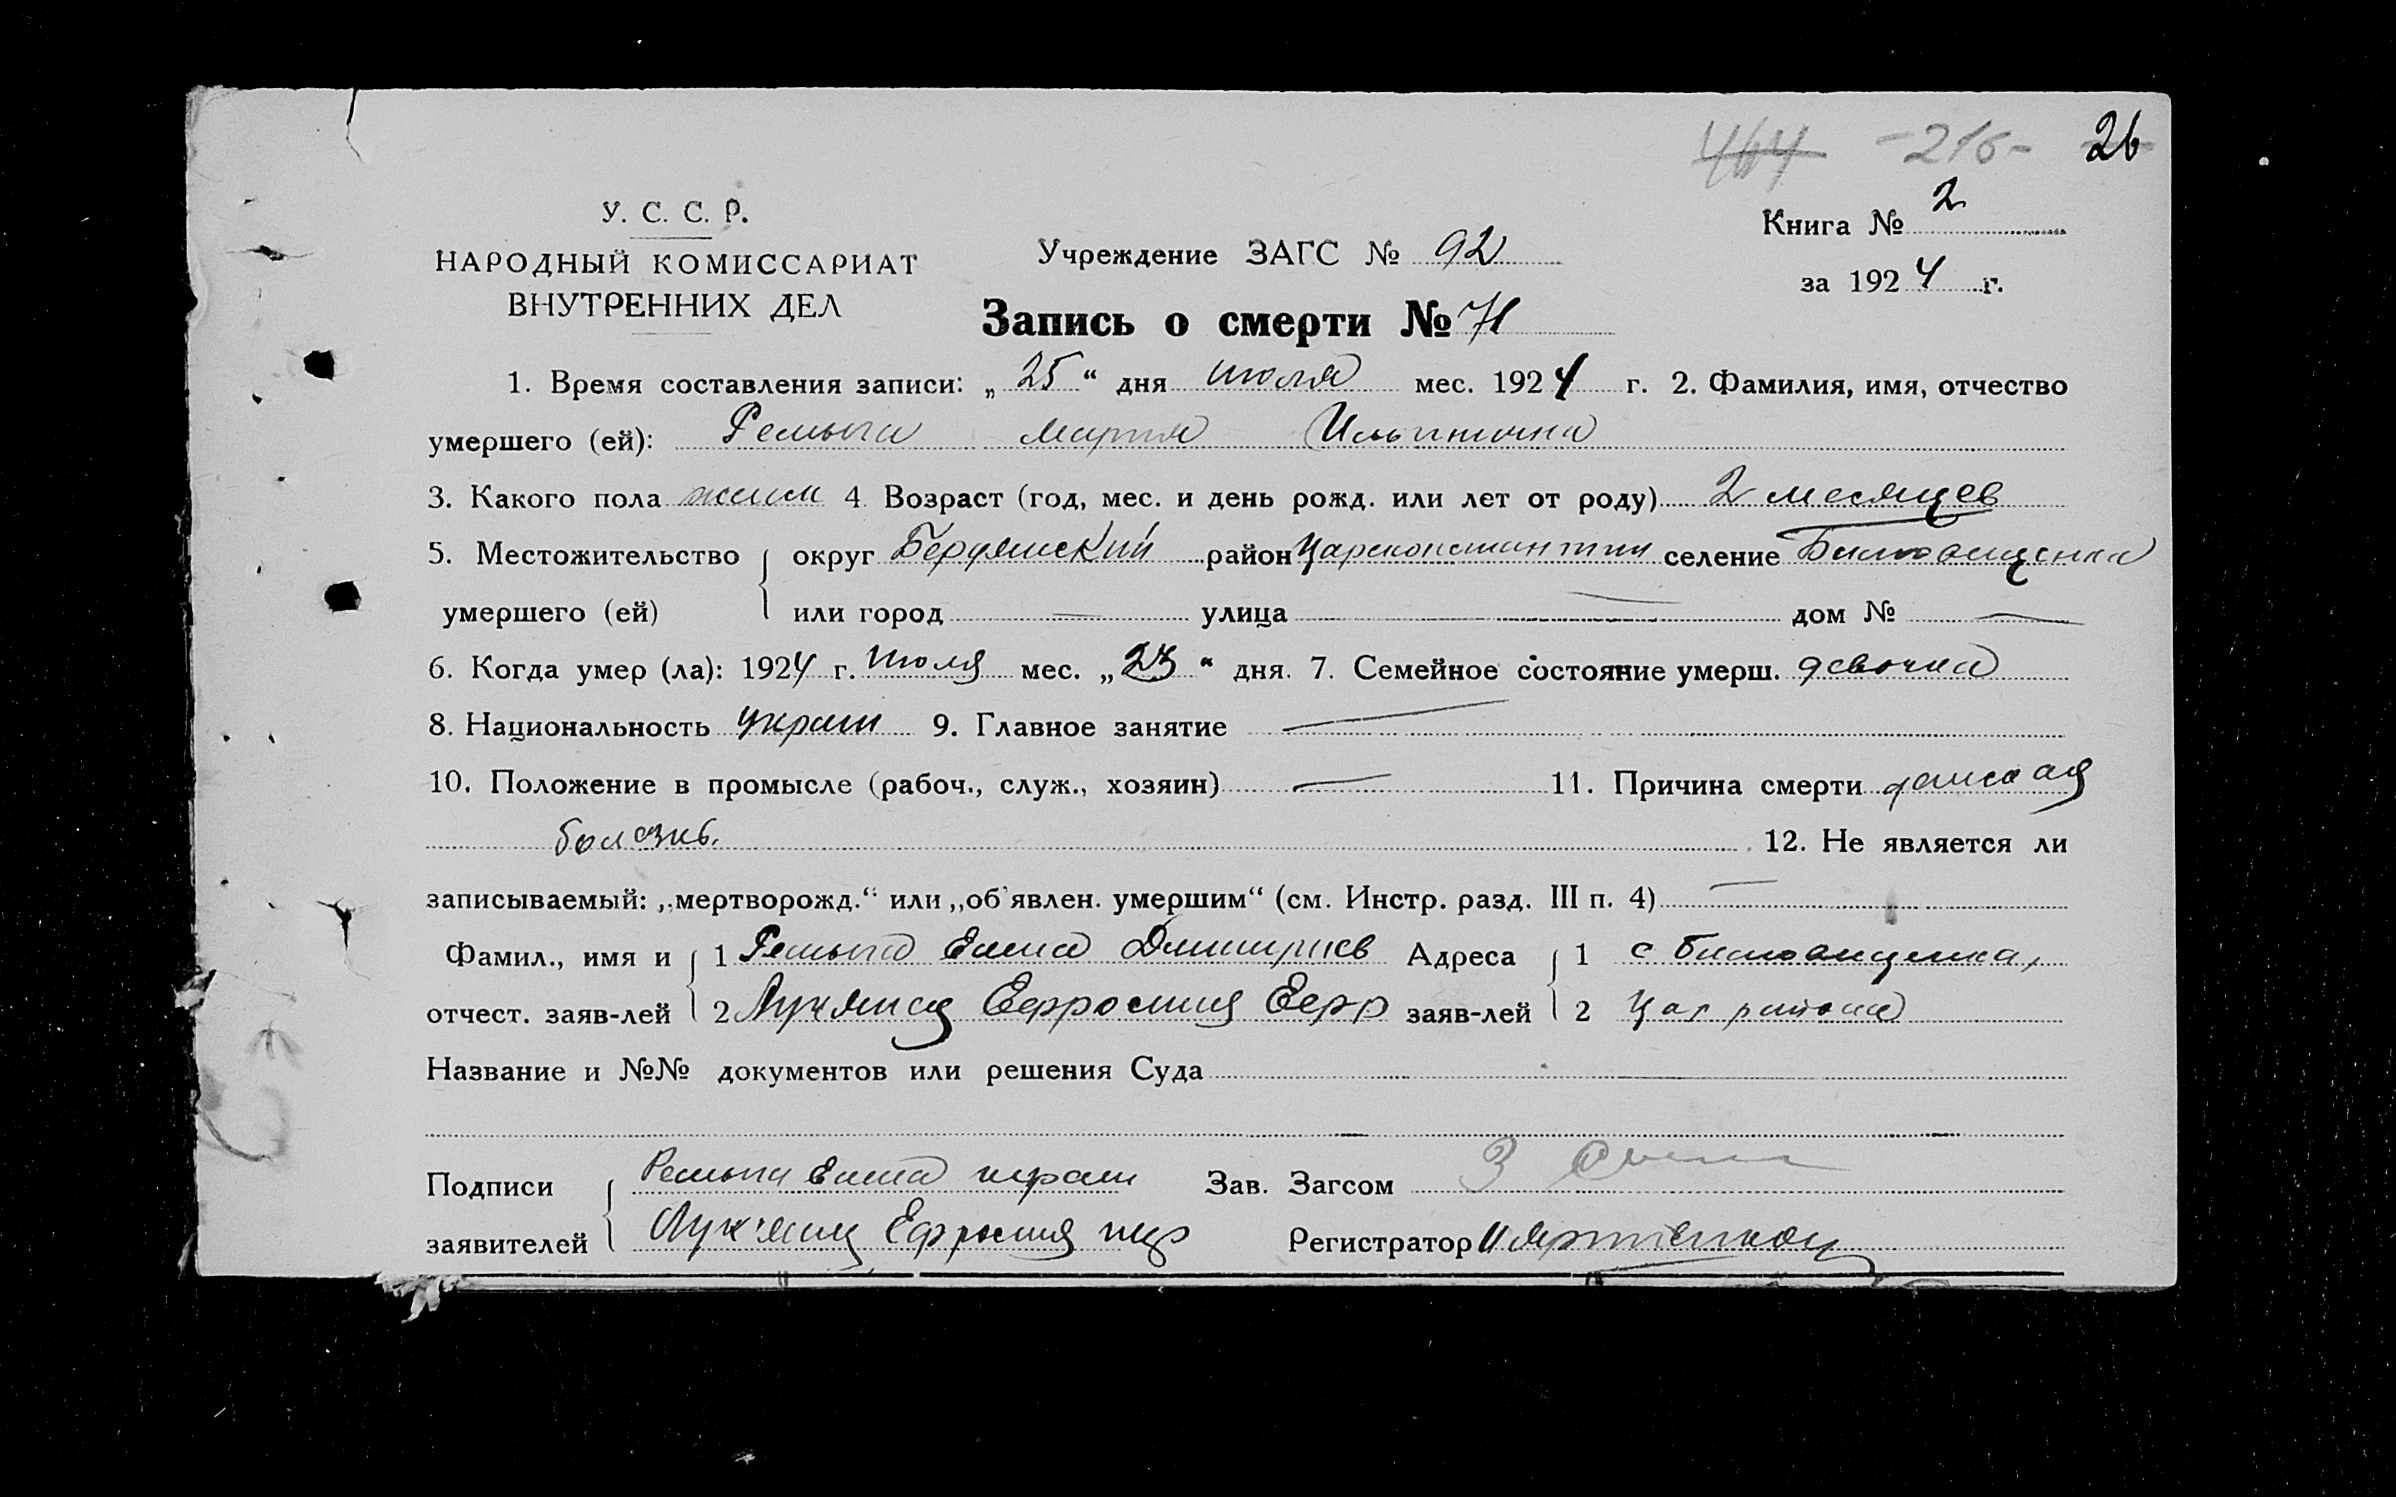 464 -216- 26
У. С. С. Р.
НАРОДНЫЙ КОМИССАРИАТ
ВНУТРЕННИХ ДЕЛ
Учреждение ЗАГС № 92
Книга № 2
за 1924 г.
Запись о смерти № 71
1. Время составления записи: „25“ дня июля мес. 1924 г. 2. Фамилия, имя, отчество
умершего (ей): Мария
3. Какого пола женск 4 Возраст (год, мес. и день рожд. или лет от роду) 2 месяцев
5. Местожительство округ Бердянский район Цареконстантин селение
умершего (ей) или город — улица — дом № —
6. Когда умер (ла): 1924 г. июля мес. „23“ дня. 7. Семейное состояние умерш. девочка
8. Национальность украин 9. Главное занятие —
10. Положение в промысле (рабоч., служ., хозяин) — 11. Причина смерти
болезнь. 12. Не является ли
записываемый: „мертворожд.“ или „об'явлен. умершим“ (см. Инстр. разд. III п. 4) —
Фамил., имя и 1 Дмитриев Адреса 1 с
отчест. заяв-лей 2 Ефросиния Ефр заяв-лей 2 Цар района
Название и №№ документов или решения Суда
Подписи Зав. Загсом
заявителей Ефросиния Регистратор